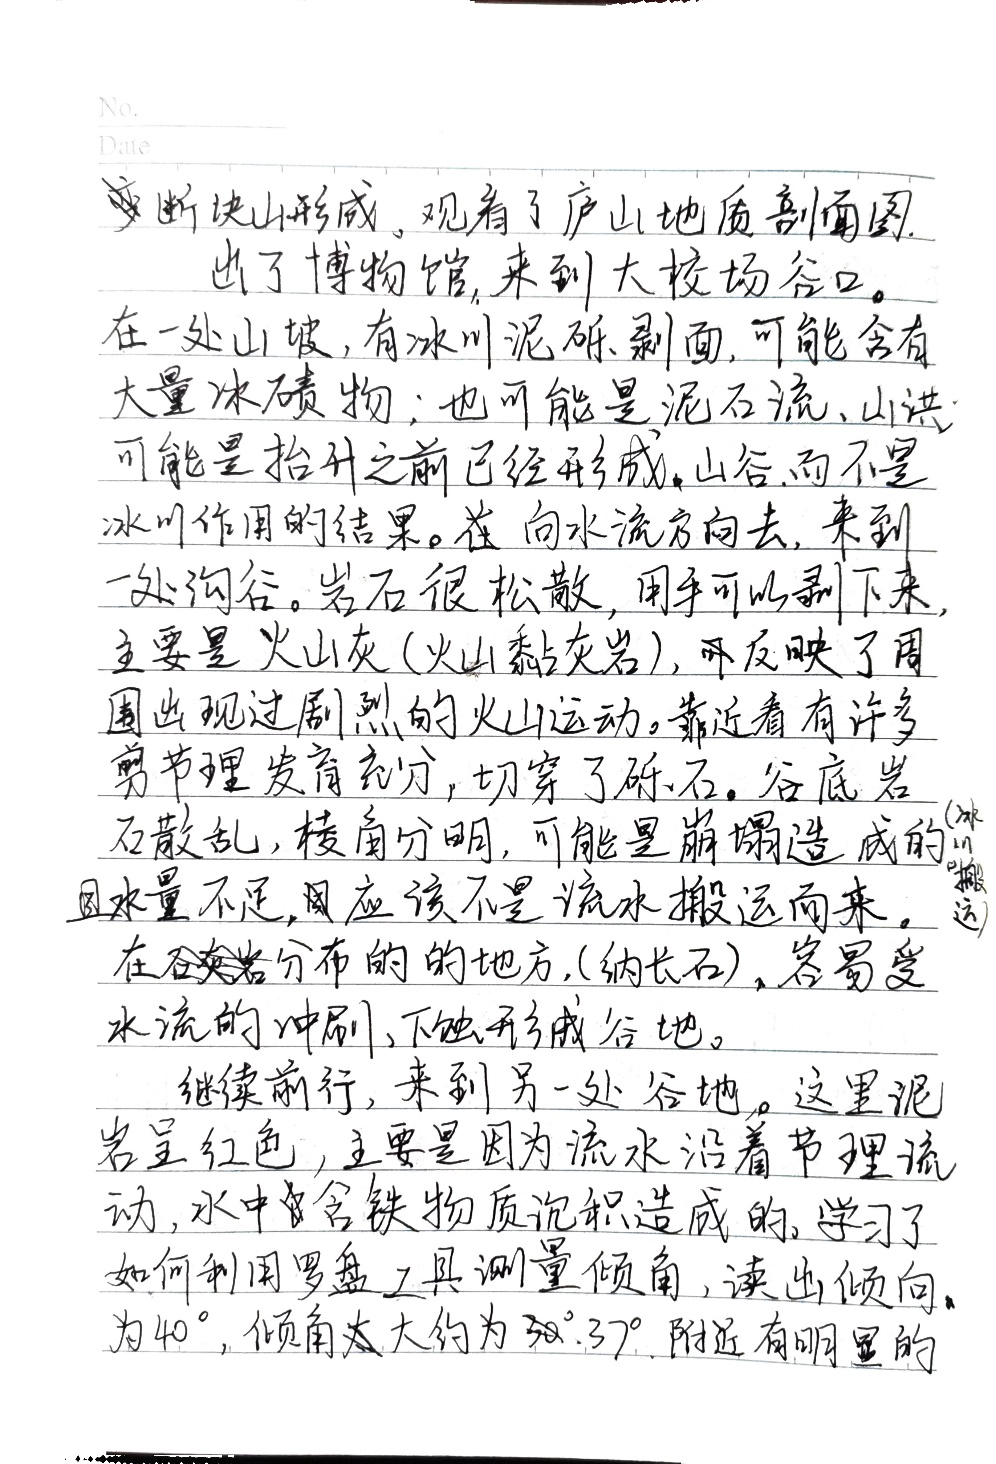 No.
Date
断块山形成。观看了庐山地质剖面图.
出了博物馆,来到大校场谷口。
在一处山坡,有冰川泥砾、剥面,可能含有
大量冰碛物;也可能是泥石流、山洪;
可能是抬升之前已经形成山谷.而不是
冰川作用的结果。在向水流方向去,来到
一处沟谷。岩石很松散,用手可以剥下来,
主要是火山灰(火山黏灰岩),反映了周
围出现过剧烈的火山运动。靠近看有许多
剪节理发育充分,切穿了砾石。谷底岩
石散乱,棱角分明,可能是崩塌造成的(冰川搬运)。
且水量不足,应该不是流水搬运而来。
在分布的的地方,(纳长石),容易受
水流的冲刷、下蚀形成谷地。
继续前行,来到另一处谷地。这里泥
岩呈红色,主要是因为流水沿着节理流
动,水中含铁物质沉积造成的。学习了
如何利用罗盘工具测量倾角,读出倾向
为40°,倾角大约为37°.附近有明显的